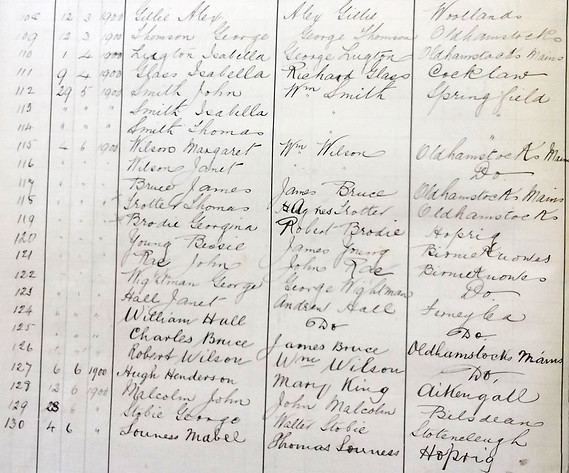 108 12 3 1900 Gillie Alex Alex Gillie Woollands
109 12 3 1900 Thomson George George Thomson Oldhamstocks
110 1 4 1900 Lugton Isabella George Lugton Oldhamstocks Mains
111 9 4 1900 Glass Isabella Richard Glass Cocklaw
112 29 5 1900 Smith John Wm Smith Springfield
113 " " " Smith Isabella "
114 " " " Smith Thomas
115 4 6 1900 Wilson Margaret Wm Wilson Oldhamstocks Mains
116 " " " Wilson Janet " Do
117 " " " Bruce James James Bruce Oldhamstocks Mains
118 " " " Trotter Thomas Agnes Trotter Oldhamstocks
119 " " " Brodie Georgina Robert Brodie Hoprig
120 " " " Young Bessie James Young Birnieknowes
121 " " " Rae John John Rae Birnieknowes
122 " " " Wightman George George Wightman Do
123 " " " Hall Janet Andrew Hall
124 " " " William Hall Do Do
125 " " " Charles Bruce James Bruce Oldhamstocks Mains
126 " " " Robert Wilson Wm Wilson Do
127 6 6 1900 Hugh Henderson Mary King Aikengall
128 12 6 1900 Malcolm John John Malcolm Bilsdean
129 28 6 " Stobie George Walter Stobie
130 4 6 " Souness Mabel Thomas Souness Hoprig